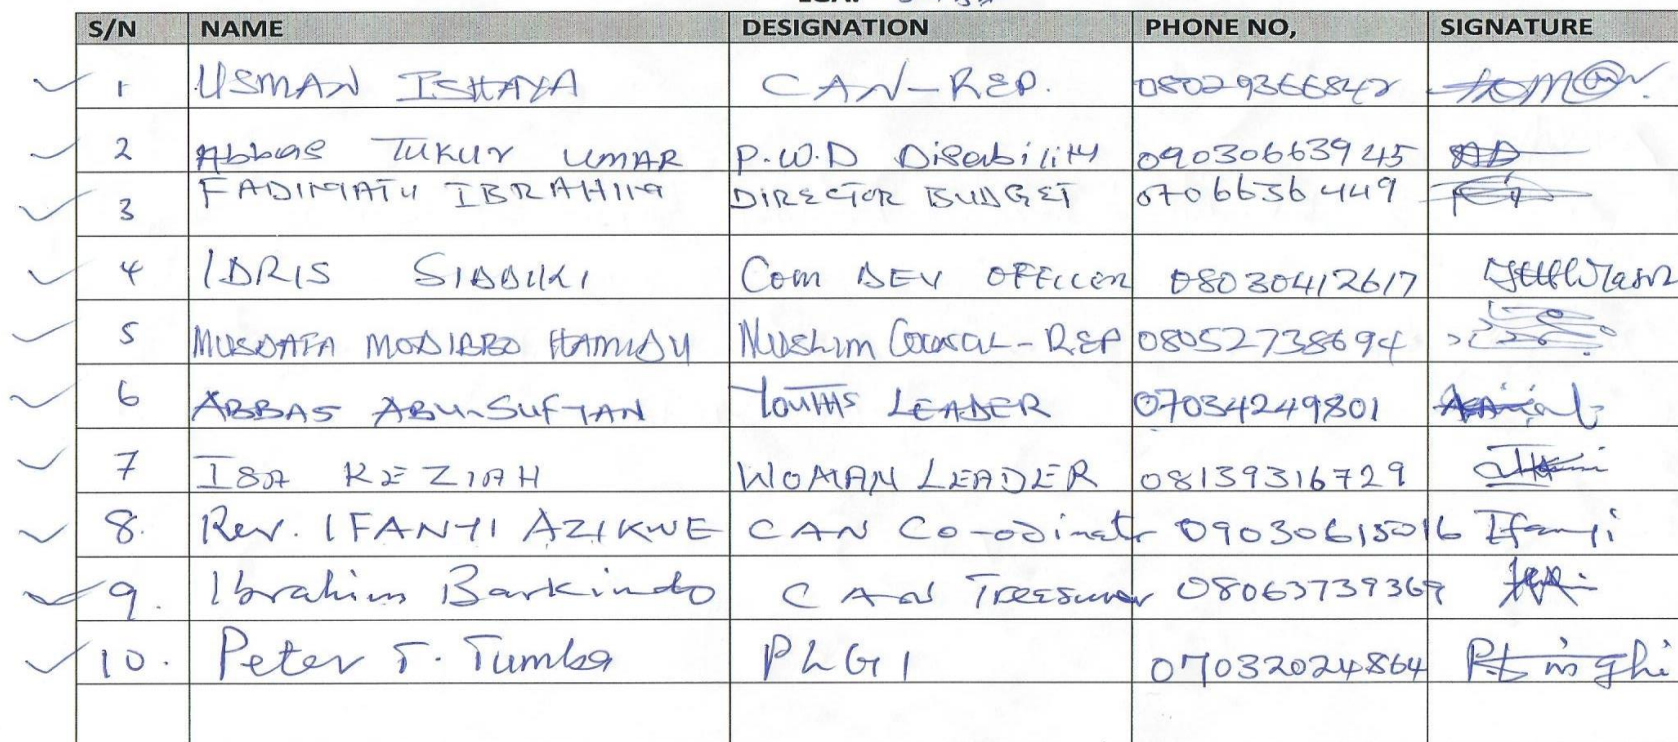 S/N NAME DESIGNATION PHONE NO, SIGNATURE
1 USMAN ISHAYA CAN-REP. 08029366842
2 Abbas TUKUR UMAR P.W.D Disability 09030663945
3 FADIMATU IBRAHIM DIRECTOR BUDGET 0706636449
4 IDRIS SIDDIKI Com DEV OFFICER 08030412617
5 MUSDAFA MODIBBO HAMIDU Muslim Council-REP 08052738694
6 ABBAS ABU-SUFYAN YOUTHS LEADER 07034249801
7 ISA KEZIAH WOMAN LEADER 08139316729
8. Rev. IFANYI AZIKWE CAN Co-odinator 09030615016 Ifanyi
9. Ibrahim Barkindo CAN Treesurer 08063739369
10. Peter T. Tumba PLGI 07032024864